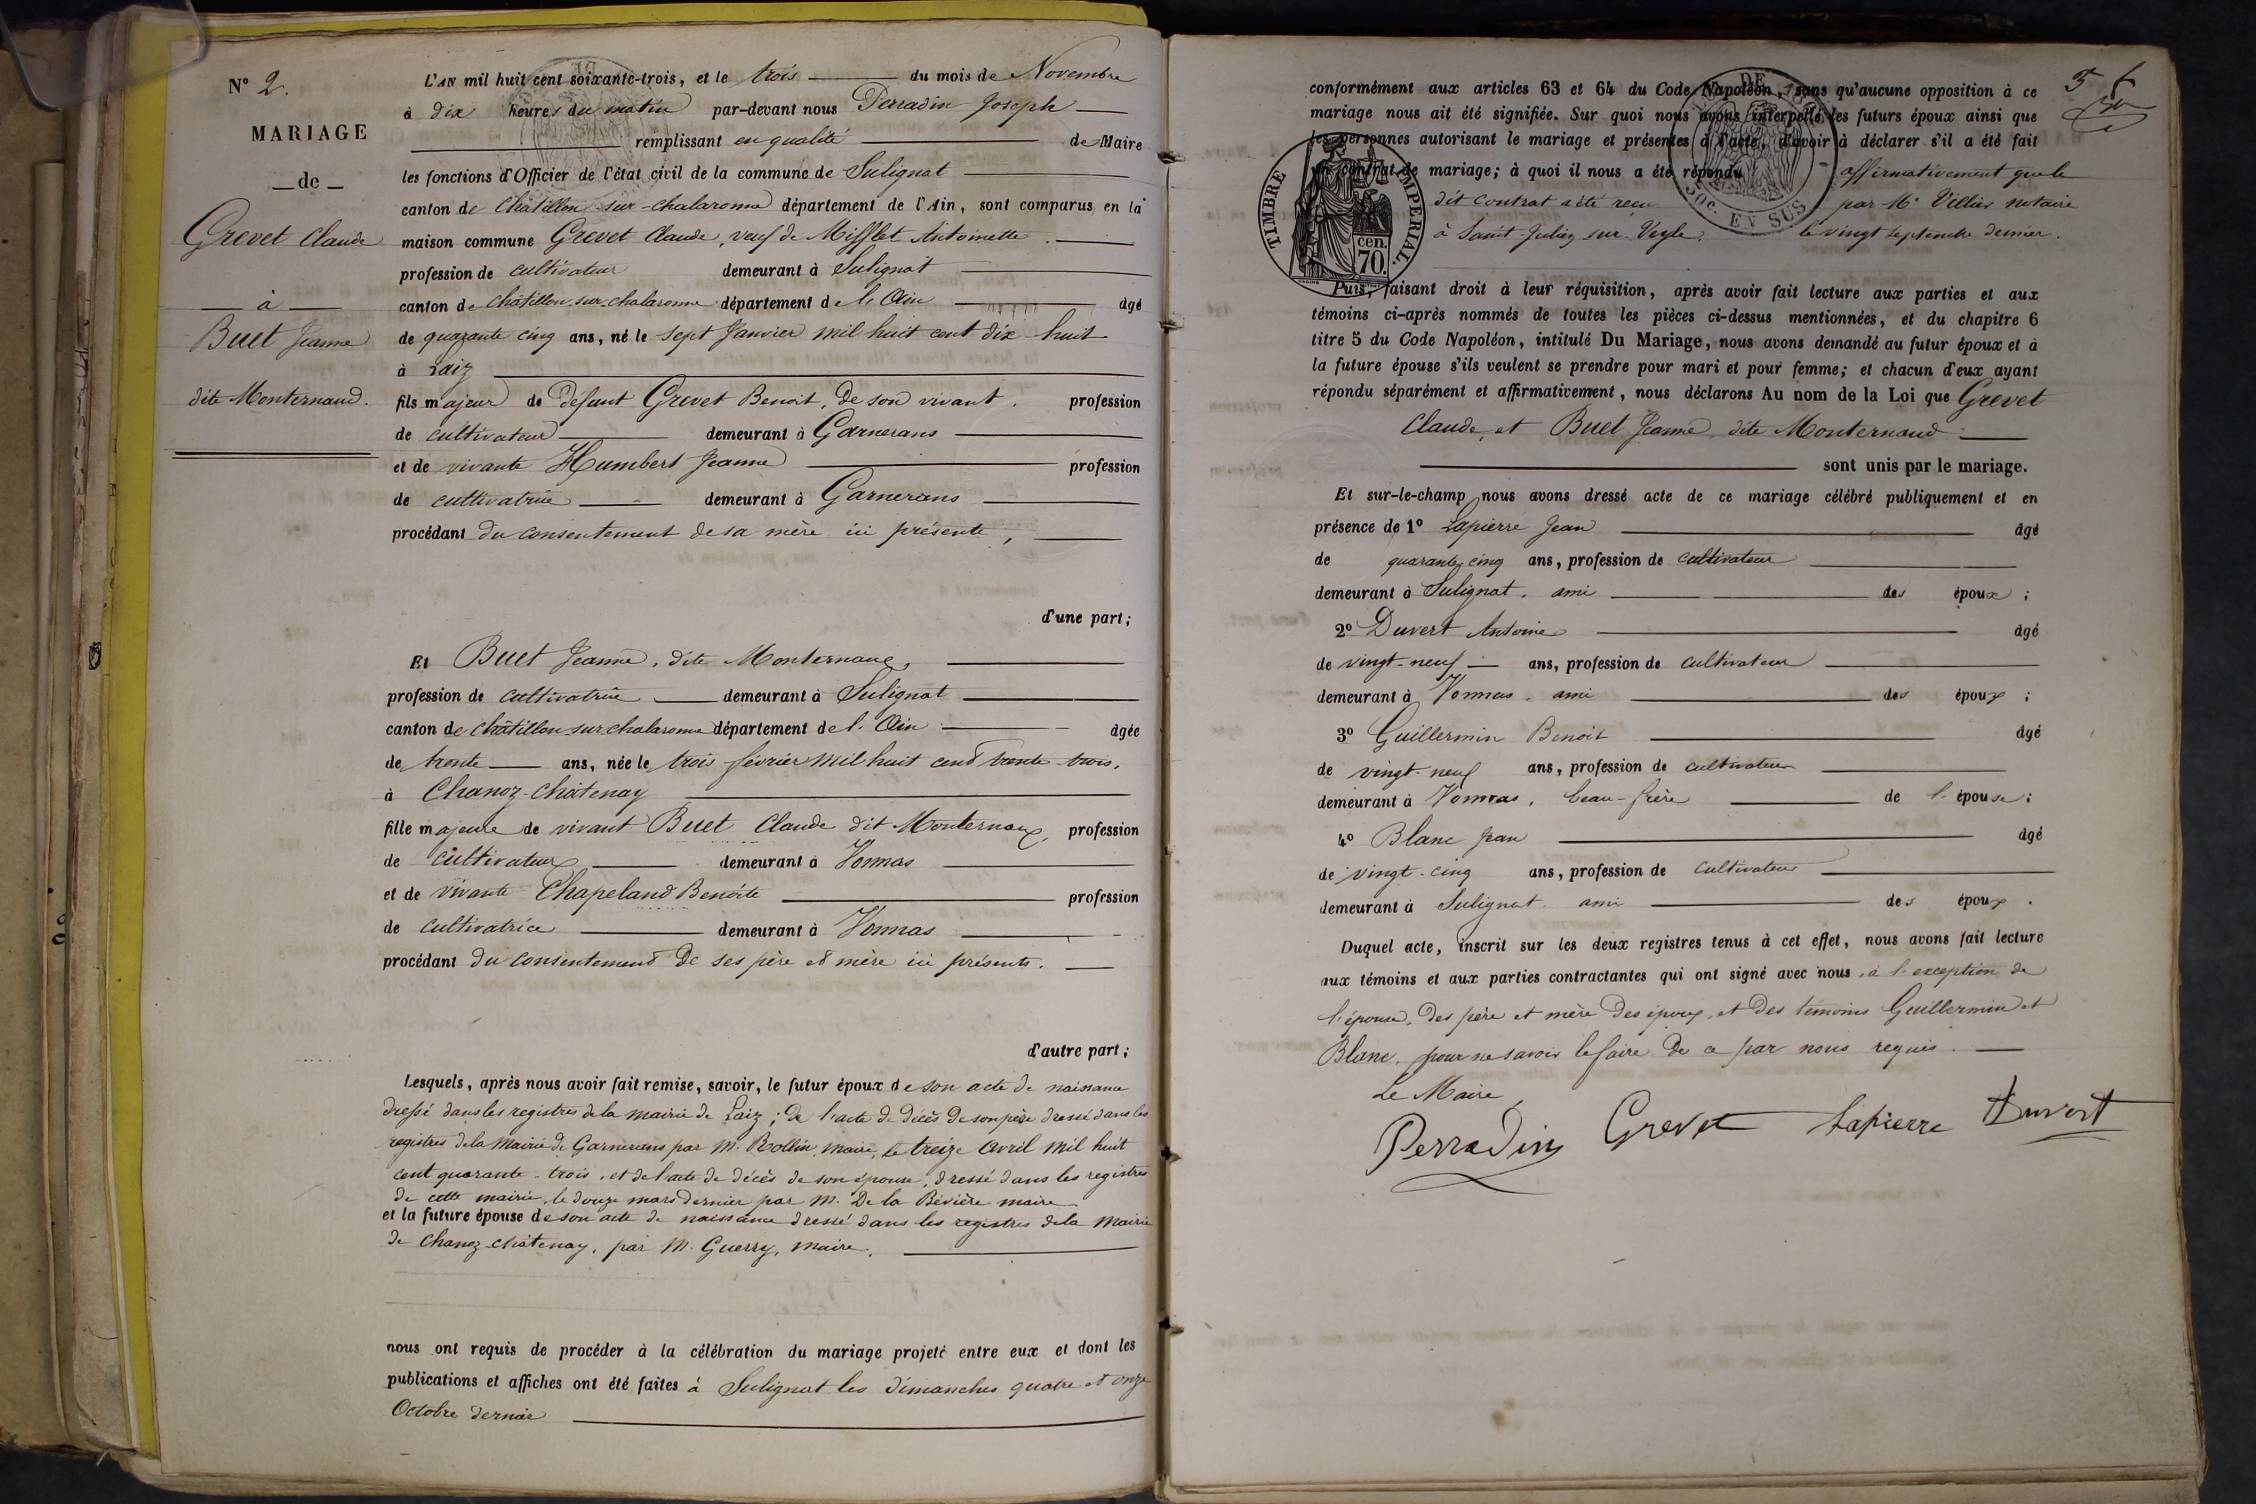 N° 2.
MARIAGE
de
Grevet Claude
à
Buet Jeanne
dite Monternaud.
L'AN mil huit cent soixante-trois, et le trois du mois de Novembre
à dix heures du matin par-devant nous Perradin Joseph
remplissant en qualité de Maire
les fonctions d'Officier de l'état civil de la commune de Sulignat
canton de Châtillon-sur-chalaronne département de l'Ain, sont comparus en la
maison commune Grevet Claude, veuf de Mifflet Antoinette
profession de cultivateur demeurant à Sulignat
canton de Châtillon-sur-chalaronne département de l'Ain âgé
de quarante cinq ans, né le sept Janvier mil huit cent dix-huit
à Laiz
fils majeur de défunt Grevet Benoit, de son vivant. profession
de cultivateur demeurant à Garnerans
et de vivante Humbert Jeanne profession
de cultivatrice demeurant à Garnerans
procédant du consentement de sa mère ici présente,
d'une part;
Et Buet Jeanne, dite Monternaud,
profession de cultivatrice demeurant à Sulignat
canton de châtillon-sur-chalaronne département de l'Ain âgée
de trente ans, née le trois février mil huit cent trente-trois,
à Chanoz-châtenay
fille majeure de vivant Buet Claude dit Monternaux, profession
de cultivateur demeurant à Vonnas
et de vivante Chapeland Benoîte profession
de cultivatrice demeurant à Vonnas
procédant du consentement de ses père et mère ici présents.
d'autre part;
Lesquels, après nous avoir fait remise, savoir, le futur époux de son acte de naissance
dressé dans les registres de la mairie de Laiz; de l'acte de décès de son père dressé dans les
registres de la Mairie de Garnerans par M. Rollin, maire, le treize avril mil huit
cent quarante-trois, et de l'acte de décès de son épouse, dressé dans les registres
de cette mairie, le douze mars dernier par M. De la Bévière maire
et la future épouse de son acte de naissance dressé dans les registres de la Mairie
de Chanoz-châtenay, par M. Guerry, maire.
nous ont requis de procéder à la célébration du mariage projeté entre eux et dont les
publications et affiches ont été faites à Sulignat les dimanches quatre et onze
Octobre dernier
conformément aux articles 63 et 64 du Code Napoléon, sans qu'aucune opposition à ce
mariage nous ait été signifiée. Sur quoi nous avons interpellé les futurs époux ainsi que
les personnes autorisant le mariage et présentes à l'acte, d'avoir à déclarer s'il a été fait
un contrat de mariage; à quoi il nous a été répondu affirmativement que le
dit contrat a été reçu par Me Villiers notaire
à Saint-Julien sur Veyle, le vingt septembre dernier.
TIMBRE IMPERIAL.
cen.
70.
DE
10c. EN SUS
Puis, faisant droit à leur réquisition, après avoir fait lecture aux parties et aux
témoins ci-après nommés de toutes les pièces ci-dessus mentionnées, et du chapitre 6
titre 5 du Code Napoléon, intitulé Du Mariage, nous avons demandé au futur époux et à
la future épouse s'ils veulent se prendre pour mari et pour femme; et chacun d'eux ayant
répondu séparément et affirmativement, nous déclarons Au nom de la Loi que Grevet
Claude, et Buet Jeanne, dite Monternaud
sont unis par le mariage.
Et sur-le-champ nous avons dressé acte de ce mariage célébré publiquement et en
présence de 1° Lapierre Jean âgé
de quarante-cinq ans, profession de cultivateur
demeurant à Sulignat. ami des époux;
2° Duvert Antoine âgé
de vingt-neuf ans, profession de cultivateur
demeurant à Vonnas. ami des époux;
3° Guillermin Benoit âgé
de vingt-neuf ans, profession de cultivateur
demeurant à Vonnas, beau-frère de l'épouse;
4° Blanc Jean âgé
de vingt-cinq ans, profession de cultivateur
demeurant à Sulignat. ami des époux.
Duquel acte, inscrit sur les deux registres tenus à cet effet, nous avons fait lecture
aux témoins et aux parties contractantes qui ont signé avec nous, à l'exception de
l'épouse, des père et mère des époux, et des témoins Guillermin et
Blanc, pour ne savoir le faire de ce par nous requis.
Le Maire,
Perradin Grevet Lapierre Duvert